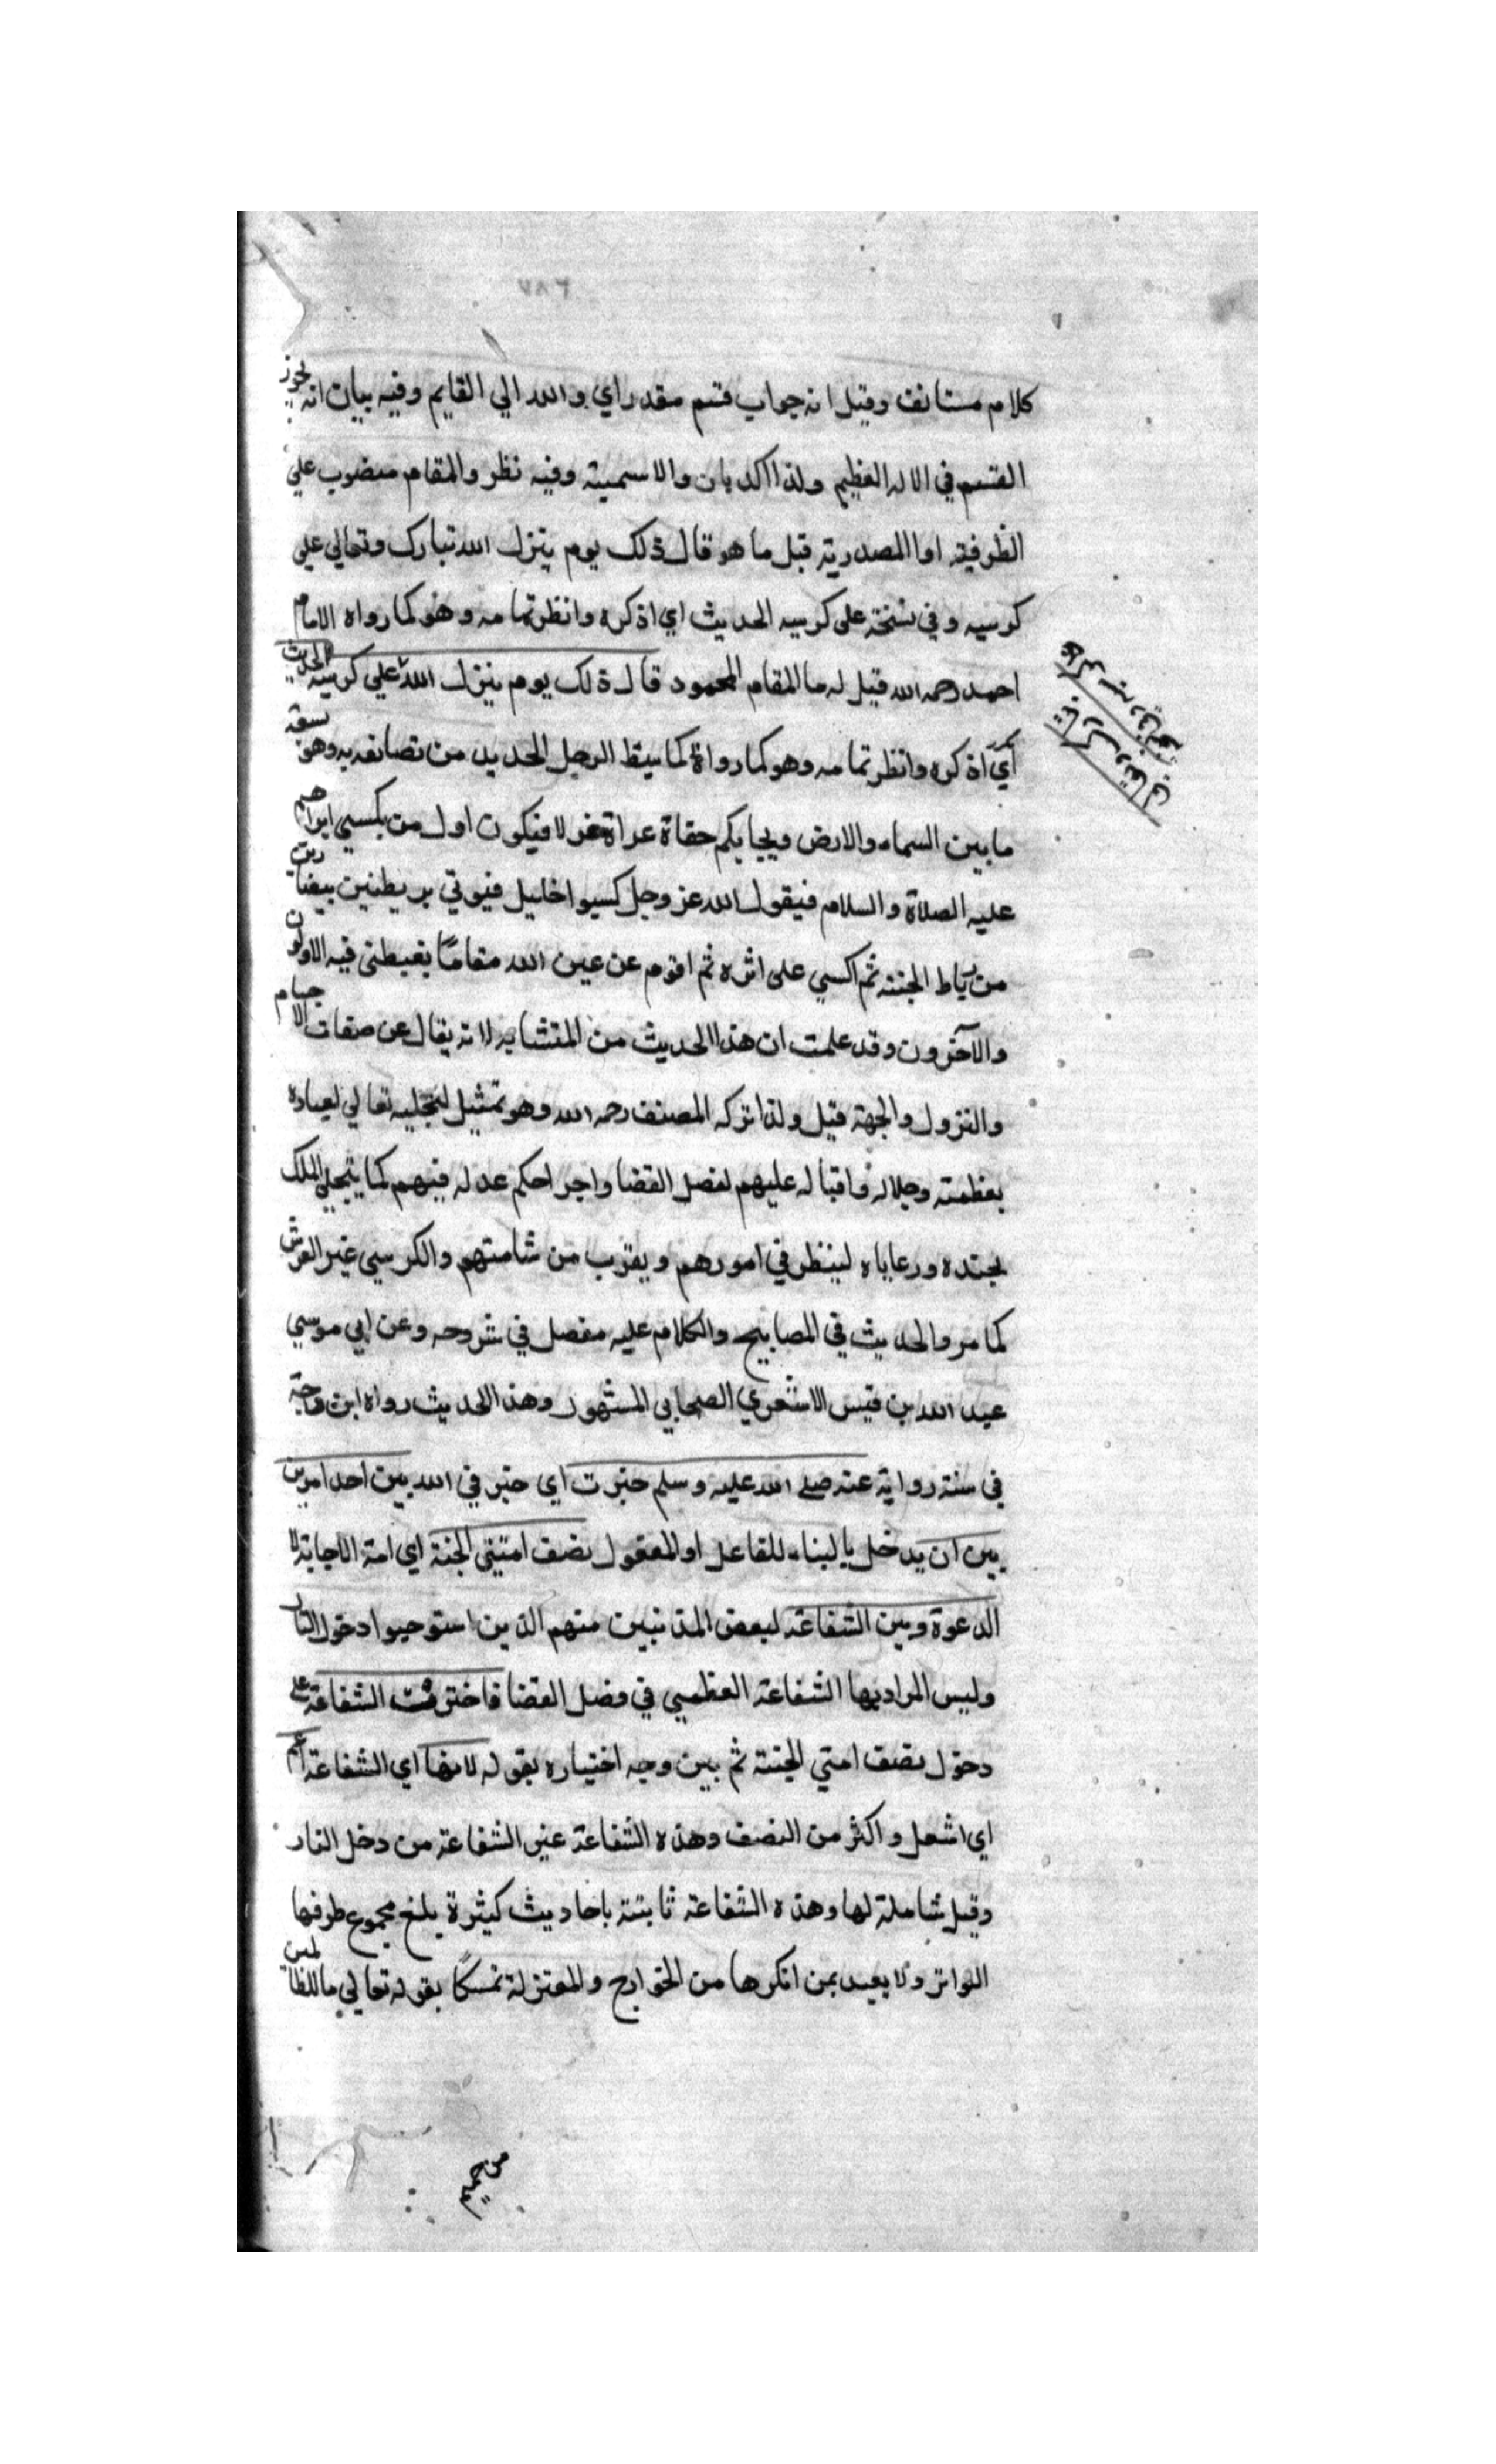 ٢٨٧
كلام مستانف وقيل انه جواب قسم مقدر اي والله اني القايم وفيه بيان انه يجوز
القسم في الاله العظيم ولذا اكد بان والاسمية وفيه نظر والمقام منصوب علي
الظرفية او المصدرية قيل ما هو قال ذلك يوم ينزل الله تبارك وتعالي علي
كرسيه وفي نسخة على كرسيه الحديث اي اذكره وانظر تمامه وهو كما رواه الامام
احمد رحمه الله قيل له ما المقام المحمود قال ذلك يوم ينزل الله علي كرسيه الحديث
أي اذكره وانظر تمامه وهو كما رواه كما يئط الرحل الجديد من تضايقه به وهو يسعة
ما بين السماء والارض ويجا بكم حفاة عراة غرلا فيكون اول من يكسي ابراهيم
عليه الصلاة والسلام فيقول الله عز وجل اكسوا خليل فيوتي بريطتين بيضاوتين
من رياط الجنة ثم اكسي على اثره ثم اقوم عن عين الله مقامًا يغبطني فيه الاولون
والآخرون وقد علمت ان هذا الحديث من المتشابه لانه يقال عن صفات الاجسام
والنزول والجهة قيل ولذا تركه المصنف رحمه الله وهو تمثيل لتجليه تعالي لعباده
بعظمته وجلاله واقباله عليهم لفصل القضا واجرا حكم عدله فيهم كما يتجلي الملك
لجنده ورعاياه لينظر في امورهم ويقرب من شامتهم والكرسي غير العرش
كما مر والحديث في المصابيح والكلام عليه مفصل في شروحه وعن ابي موسي
عبد الله بن قيس الاشعري الصحابي المشهور وهذا الحديث رواه ابن ماجة
في سننه رواية عنه صلى الله عليه وسلم خيرت اي خيرني الله بين احد امرين
بين ان يدخل بالبناء للفاعل او المفعول نصف امتي الجنة اي امة الاجابة لا
الدعوة وبين الشفاعة لبعض المذنبين منهم الذين استوجبوا دخول النار
وليس المراد بها الشفاعة العظمي في فصل القضا فاخترت الشفاعة علي
دخول نصف امتي الجنة ثم بين وجه اختياره بقوله لانها اي الشفاعة اعم
اي اشمل واكثر من النصف وهذه الشفاعة غير الشفاعة من دخل النار
وقيل شاملة لها وهذه الشفاعة ثابتة باحاديث كثيرة يبلغ مجموع طرفها
التواتر ولا يعبد بمن انكرها من الخوارج والمعتزلة تمسكًا بقوله تعالي ما للظالمين
من حميم